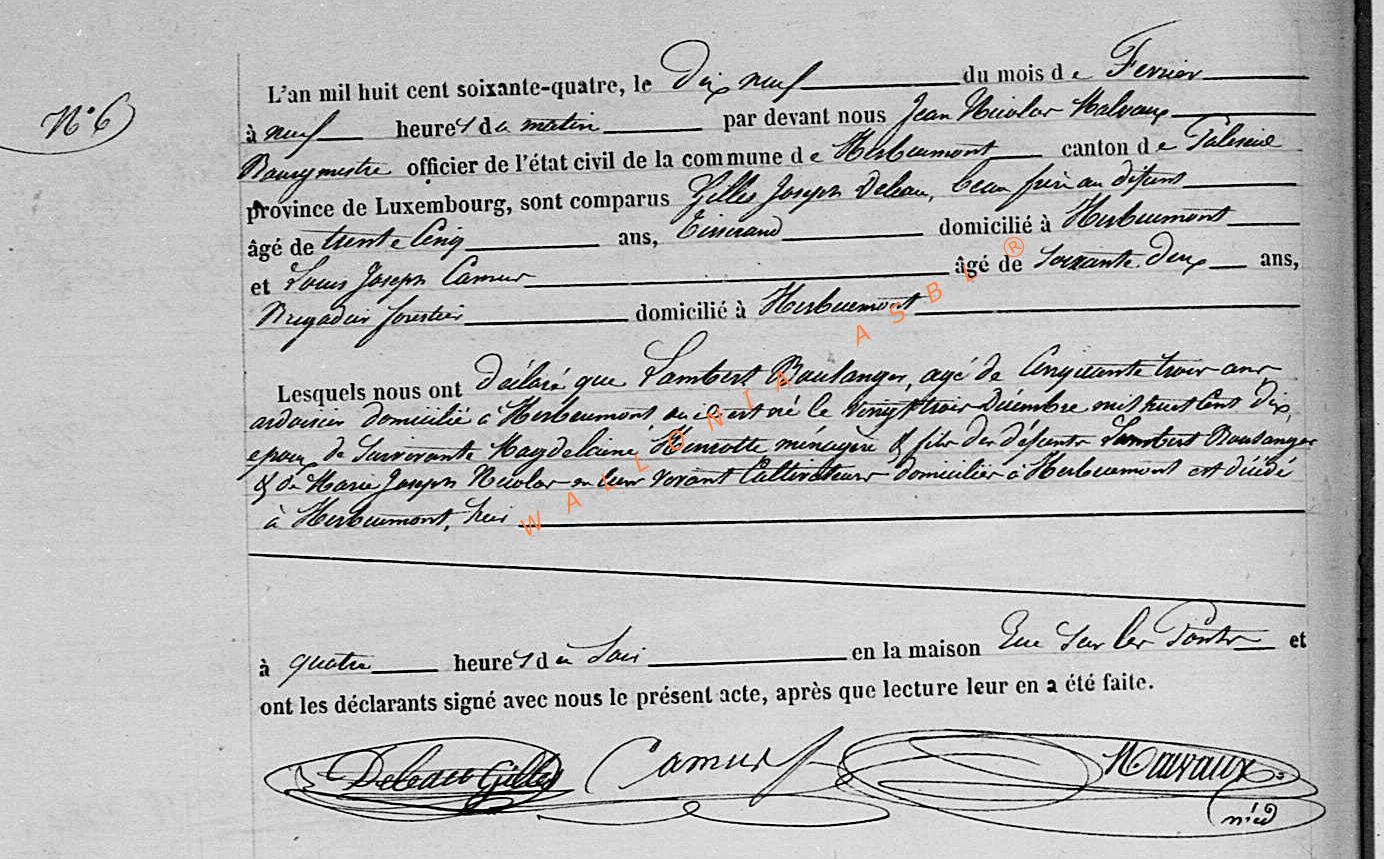 N° 6
L'an mil huit cent soixante-quatre, le Dix neuf du mois de Fevrier
à neuf heures du matin par devant nous Jean Nicolas Malvaux
Bourgmestre officier de l'état civil de la commune de Herbeumont canton de Paliseul
province de Luxembourg, sont comparus Gilles Joseph Deleau, beau frère au défunt
âgé de trente cinq ans, Tisserand domicilié à Herbeumont
et Louis Joseph Camus âgé de Soixante Deux ans,
Brigadier forestier domicilié à Herbeumont
Lesquels nous ont Déclaré que Lambert Boulanger, agé de Cinquante trois ans
ardoisier domicilié à Herbeumont où il est né le vingt trois Décembre mil huit Cent Dix,
epoux de Survivante Magdelaine Henrotte ménagère & fils des défunts Lambert Boulanger
& de Marie Joseph Nicolas en leur vivant Cultivateurs domiciliés à Herbeumont est décédé
à Herbeumont, hier
à quatre heures du Soir en la maison Rue Sur les Ponts et
ont les déclarants signé avec nous le présent acte, après que lecture leur en a été faite.
Deleau Gilles Camus Malvaux
nicd
WALLONIA ASBL ®